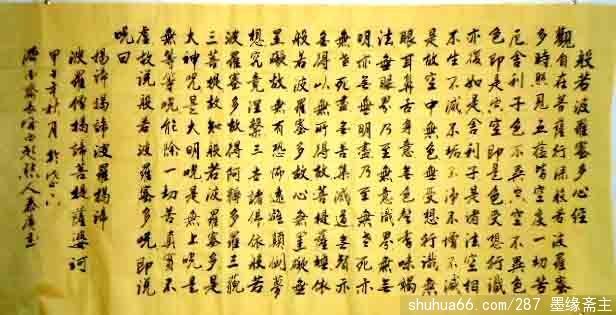 般若波羅蜜多心經
觀自在菩薩行深般若波羅蜜
多時照見五蘊皆空度一切苦
厄舍利子色不異空空不異色
色即是空空即是色受想行識
亦復如是舍利子是諸法空相
不生不滅不垢不淨不增不減
是故空中無色無受想行識無
眼耳鼻舌身意無色聲香味觸
法無眼界乃至無意識界無無
明亦無無明盡乃至無老死亦
無老死盡無苦集滅道無智亦
無得以無所得故菩提薩埵依
般若波羅蜜多故心無罣礙無
罣礙故無有恐怖遠離顛倒夢
想究竟涅槃三世諸佛依般若
波羅蜜多故得阿耨多羅三藐
三菩提故知般若波羅蜜多是
大神咒是大明咒是無上咒是
無等等咒能除一切苦真實不
虛故說般若波羅蜜多咒即說
咒曰
揭諦揭諦波羅揭諦
波羅僧揭諦菩提薩婆訶
shuhua66.com/287 墨缘斋主